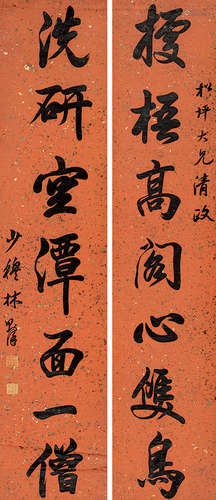 松坪大兄清政
棲梧高閣心雙鳥
洗研空潭面一僧
少穆林則徐